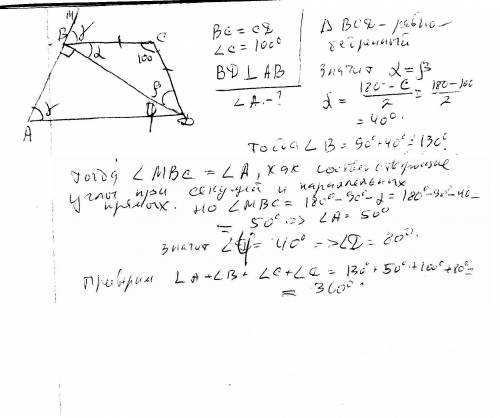 M
B γ
α
C
100
β
ψ
A γ
D
BC = CD
∠C = 100°
BD ⊥ AB
∠A - ?
Δ BCD - равно-
бедренный
значит α = β
α = (180° - C)/2 = (180 - 100)/2
= 40°
тогда ∠B = 90° + 40° = 130°
Тогда ∠MBC = ∠A, как соответствующие
углы при секущей и параллельных
прямых. но ∠MBC = 180° - 90° - α = 180° - 90 - 40 =
= 50° => ∠A = 50°
значит ∠ψ = 40° => ∠D = 80°
Проверим ∠A + ∠B + ∠C + ∠C = 130° + 50° + 100° + 80° =
= 360°